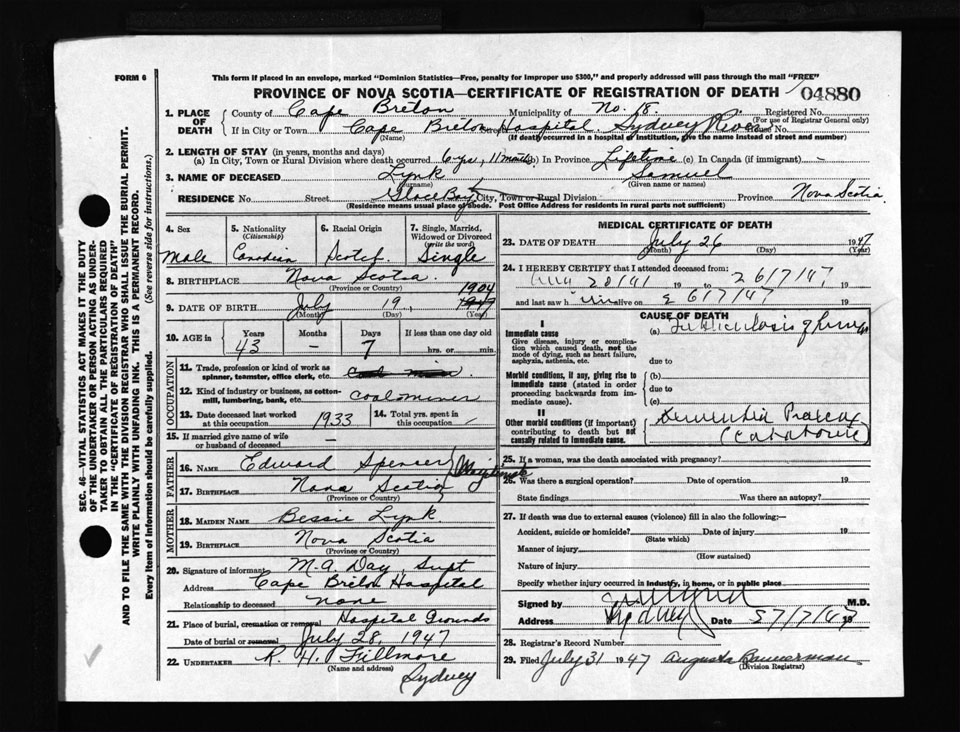 FORM 6
This form if placed in an envelope, marked "Dominion Statistics—Free, penalty for improper use $300," and properly addressed will pass through the mail "FREE"
PROVINCE OF NOVA SCOTIA—CERTIFICATE OF REGISTRATION OF DEATH
04880
SEC. 46—VITAL STATISTICS ACT MAKES IT THE DUTY
OF THE UNDERTAKER OR PERSON ACTING AS UNDER-
TAKER TO OBTAIN ALL THE PARTICULARS REQUIRED
IN THE "CERTIFICATE OF REGISTRATION OF DEATH"
AND TO FILE THE SAME WITH THE DIVISION REGISTRAR WHO SHALL ISSUE THE BURIAL PERMIT.
WRITE PLAINLY WITH UNFADING INK. THIS IS A PERMANENT RECORD.
Every item of information should be carefully supplied. (See reverse side for instructions.)
1. PLACE OF DEATH
County of Cape Breton Municipality of No. 8. Registered No.
(For use of Registrar General only)
If in City or Town Cape Breton Hospital. Sydney River House No.
(Name) (If death occurred in a hospital or institution, give the name instead of street and number)
2. LENGTH OF STAY (in years, months and days)
(a) In City, Town or Rural Division where death occurred 6 yrs, 11 months (b) In Province Lifetime (c) In Canada (if immigrant) -
3. NAME OF DECEASED Lynk Samuel
(Surname) (Given name or names)
RESIDENCE No. Street Glace Bay City, Town or Rural Division Province Nova Scotia.
(Residence means usual place of abode. Post Office Address for residents in rural parts not sufficient)
4. Sex 5. Nationality (Citizenship) 6. Racial Origin 7. Single, Married, Widowed or Divorced (write the word)
Male Canadian Scotch Single
8. BIRTHPLACE Nova Scotia.
(Province or Country)
9. DATE OF BIRTH July 19 1904
(Month) (Day) (Year)
10. AGE in Years Months Days If less than one day old
43 - 7 hrs. or min.
OCCUPATION
11. Trade, profession or kind of work as spinner, teamster, office clerk, etc. Coal miner
12. Kind of industry or business, as cotton-mill, lumbering, bank, etc. Coalminer
13. Date deceased last worked at this occupation 1933 14. Total yrs. spent in this occupation
15. If married give name of wife or husband of deceased -
FATHER
16. NAME Edward Spencer
17. BIRTHPLACE Nova Scotia
(Province or Country)
MOTHER
18. MAIDEN NAME Bessie Lynk
19. BIRTHPLACE Nova Scotia
(Province or Country)
20. Signature of informant M.A. Day, Supt
Address Cape Breton Hospital
Relationship to deceased None
21. Place of burial, cremation or removal Hospital Grounds
Date of burial or removal July 28, 1947
22. UNDERTAKER R. H. Fillmore
(Name and address)
Sydney
MEDICAL CERTIFICATE OF DEATH
23. DATE OF DEATH July 26 1947
(Month) (Day)
24. I HEREBY CERTIFY that I attended deceased from:
Aug 28/41 19 to 26/7/47 19
and last saw him alive on 26/7/47 19
CAUSE OF DEATH
I
Immediate cause (a) Tuberculosis of lungs
Give disease, injury or complica-
tion which caused death, not the
mode of dying, such as heart failure,
asphyxia, asthenia, etc.
due to
Morbid conditions, if any, giving rise to
immediate cause (stated in order
proceeding backwards from im-
mediate cause).
(b)
due to
(c)
II
Other morbid conditions (if important)
contributing to death but not
causally related to immediate cause.
Dementia Praecox
(Catatonic)
25. If a woman, was the death associated with pregnancy?
26. Was there a surgical operation? Date of operation 19
State findings Was there an autopsy?
27. If death was due to external causes (violence) fill in also the following:—
Accident, suicide or homicide? Date of injury 19
(State which)
Manner of injury
(How sustained)
Nature of injury
Specify whether injury occurred in industry, in home, or in public place
Signed by M.D.
Address Sydney Date 27/7/47 19
28. Registrar's Record Number
29. Filed July 31 1947 Augusta Bannerman
(Division Registrar)